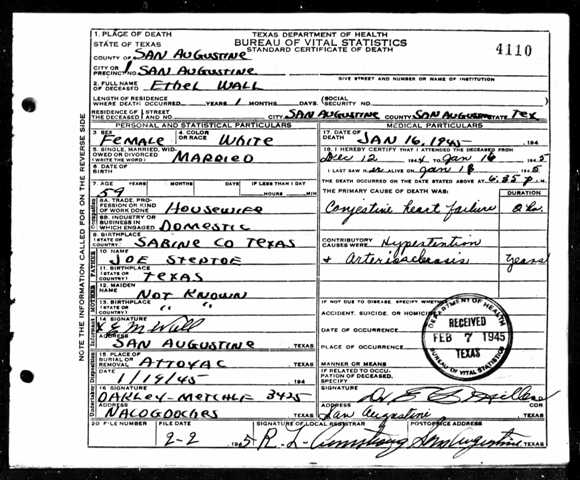 TEXAS DEPARTMENT OF HEALTH
BUREAU OF VITAL STATISTICS
STANDARD CERTIFICATE OF DEATH
4110
1. PLACE OF DEATH
STATE OF TEXAS
COUNTY OF SAN AUGUSTINE
CITY OR PRECINCT NO. 1 SAN AUGUSTINE
GIVE STREET AND NUMBER OR NAME OF INSTITUTION
2. FULL NAME OF DECEASED Ethel WALL
LENGTH OF RESIDENCE WHERE DEATH OCCURRED YEARS 1 MONTHS DAYS (SOCIAL SECURITY NO.
RESIDENCE OF THE DECEASED STREET AND NO. CITY SAN AUGUSTINE COUNTY SAN AUGUSTINE STATE TEX
PERSONAL AND STATISTICAL PARTICULARS
3. SEX FEMALE
4. COLOR OR RACE WHITE
5. SINGLE, MARRIED, WIDOWED OR DIVORCED (WRITE THE WORD) MARRIED
6. DATE OF BIRTH
7. AGE YEARS MONTHS DAYS IF LESS THAN 1 DAY
59 HOURS MIN
8A. TRADE, PROFESSION OR KIND OF WORK DONE HOUSEWIFE
8B. INDUSTRY OR BUSINESS IN WHICH ENGAGED DOMESTIC
9. BIRTHPLACE (STATE OR COUNTRY) SABINE CO TEXAS
10. NAME JOE STEPTOE
11. BIRTHPLACE (STATE OR COUNTRY) TEXAS
12. MAIDEN NAME NOT KNOWN
13. BIRTHPLACE (STATE OR COUNTRY) " "
14. SIGNATURE X E M Wall
ADDRESS SAN AUGUSTINE TEXAS
15. PLACE OF BURIAL OR REMOVAL ATTOYAC TEXAS
1/19/45 194
16. SIGNATURE OAKLEY-METCALF 3425
ADDRESS NACOGDOCHES TEXAS
MEDICAL PARTICULARS
17. DATE OF DEATH JAN 16, 1945 194
18. I HEREBY CERTIFY THAT I ATTENDED THE DECEASED FROM
Dec 12 1944 to Jan 16 1945
I LAST SAW ALIVE ON Jan 1945
THE DEATH OCCURRED ON THE DATE STATED ABOVE AT 6:35 P M.
THE PRIMARY CAUSE OF DEATH WAS:
DURATION
Congestive heart failure
CONTRIBUTORY CAUSES WERE: Hypertention
& Arteriosclerosis years
IF NOT DUE TO DISEASE, SPECIFY WHETHER:
ACCIDENT, SUICIDE, OR HOMICIDE
DATE OF OCCURRENCE
PLACE OF OCCURRENCE
MANNER OR MEANS
IF RELATED TO OCCUPATION OF DECEASED, SPECIFY
DEPARTMENT OF HEALTH
RECEIVED
FEB 7 1945
TEXAS
BUREAU OF VITAL STATISTICS
SIGNATURE Dr.
ADDRESS San Augustine TEXAS
20. FILE NUMBER
FILE DATE 2-2 1945
SIGNATURE OF LOCAL REGISTRAR R. L. Armstrong
POSTOFFICE ADDRESS San Augustine, TEXAS
NOTE THE INFORMATION CALLED FOR ON THE REVERSE SIDE
Occupation
FATHER
MOTHER
Informant
Disposition
Undertaker